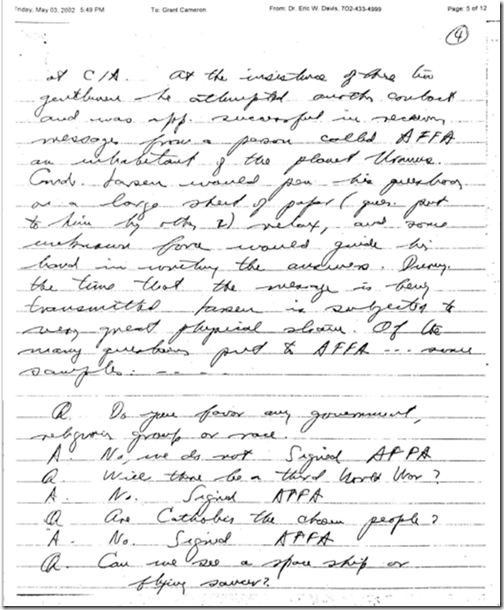 Friday, May 03, 2002 5:49 PM To: Grant Cameron From: Dr. Eric W. Davis, 702-433-4999 Page: 5 of 12
4
at CIA. At the insistence of these two
gentlemen he attempted another contact
and was app. successful in receiving
message from a person called AFFA
an inhabitant of the planet Uranus.
Cmdr. Larsen would pen his questions
on a large sheet of paper (ques. put
to him by other 2) relax, and some
unknown force would guide his
hand in writing the answers. During
the time that the message is being
transmitted Larsen is subjected to
very great physical strain. Of the
many questions put to AFFA --- some
samples: - - -
Q. Do you favor any government,
religious group or race.
A. No, we do not Signed AFFA
Q. Will there be a third World War?
A. No. Signed AFFA
Q. Are Catholics the chosen people?
A. No. Signed AFFA
Q. Can we see a space ship or
flying saucer?